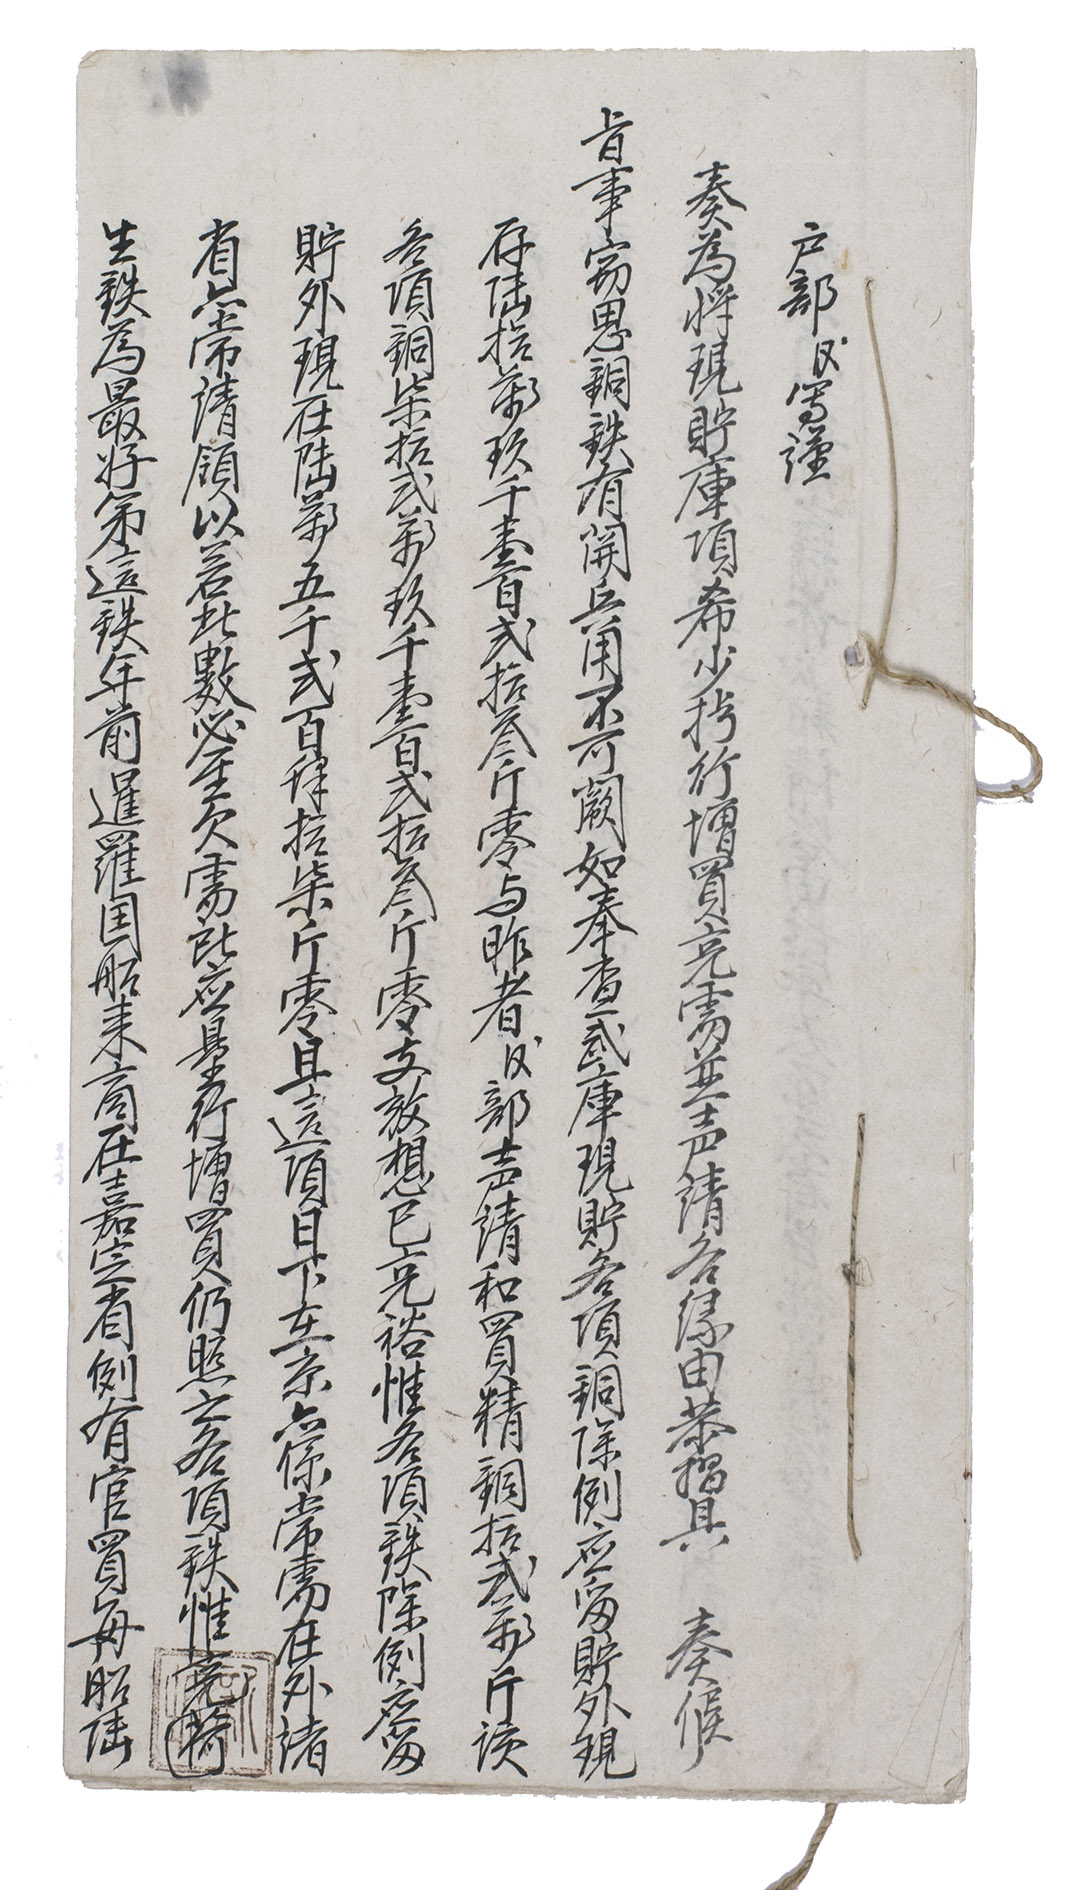 户部臣等謹
奏為將現貯庫項希少拟行增買充需並声請各緣由恭摺具　奏候
旨事窃思銅鉄有関兵用不可闕如奉查武庫現貯各項銅除例应留貯外現
存陆拾萬玖千壹百貳拾叁斤零与昨者臣部声請和買精銅拾貳萬斤該
各項銅柒拾貳萬玖千壹百貳拾叁斤零支放想已充裕惟各項鉄除例应留
貯外現在陆萬五千貳百肆拾柒斤零且這項目下在京亦係常需在外諸
省亦常請領以若此數必至欠需玆应量行增買仍照之各項鉄惟
生鉄為最好第這鉄年前暹羅国船来商在嘉定省例有官買每船陆